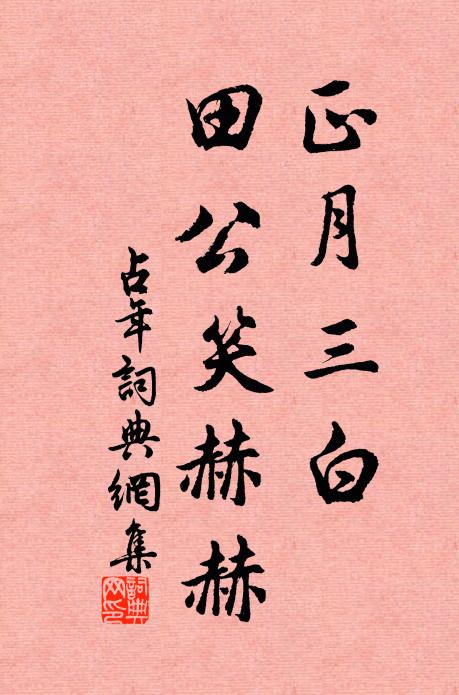 正月三白
田公笑赫赫
占年詞典網集
詞典網印